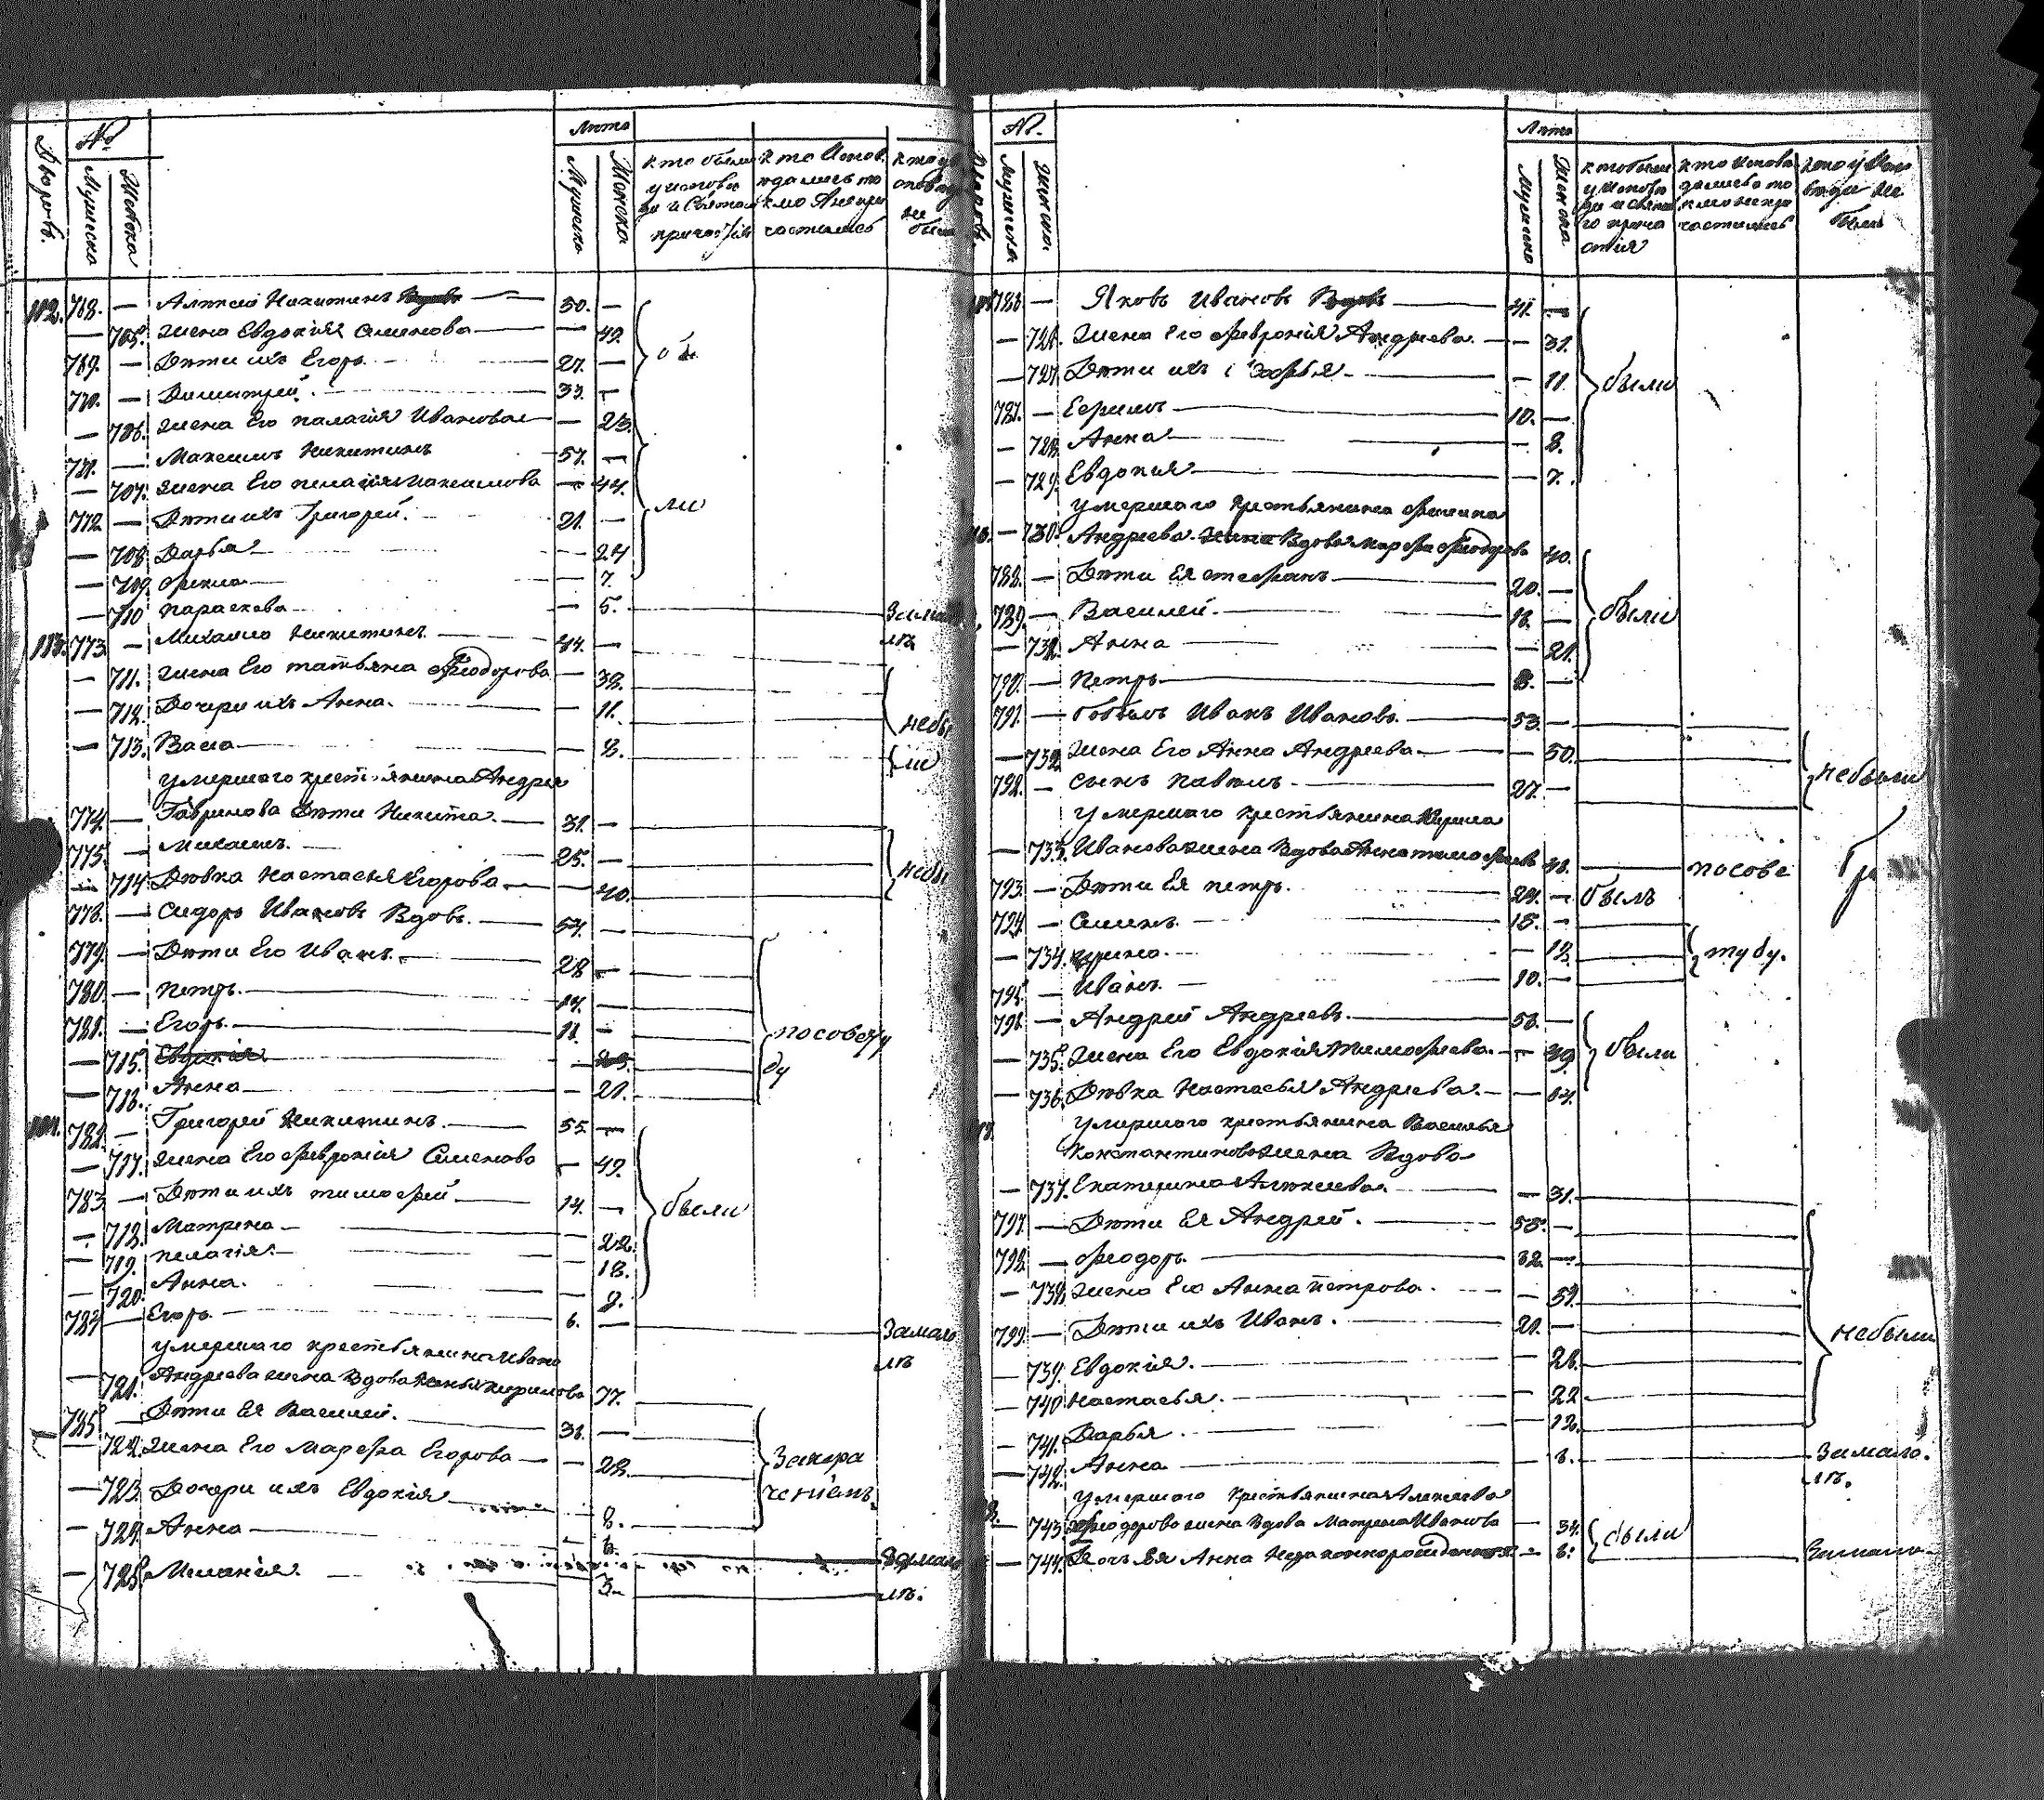 №
Дворовъ.
Мужеска
Женска
Лѣта
Мужеска
Женска
кто были у исповѣди и Святаго причастія
кто Исповѣдались то кмо Анепри частились
не были
112. 768. — Алексей Никитинъ — 50. —
— 705. жена Евдокія Семенова — — 49.
769. — Дѣти ихъ Егоръ — 27. —
770. — Димитрей. — 33. —
— 706. жена Его палагія Иванова — — 23.
771. — Максимъ Никитинъ 57. —
— 707. жена Его пелагія Максимова — 44.
772 — Дѣти ихъ Григорей. 21. —
— 708 Дарья — 24
— 709. — 7.
— 710 параскева — 5. За мало лѣ
были
113. 773. — Михаило Никитинъ — 44. —
— 711. жена Его татьяна Феодорова — 38.
— 712. Дочери ихъ Анна. — 11.
— 713. Васа — — 8.
небы ли
умершаго крестьянина Андрея
774. — Гаврилова Дѣти Никита. — 31. —
775. — Михаилъ. 25. —
— 714 Дѣвка Настасья Егорова — — 40.
небы
776. — Сидоръ Ивановъ Вдовъ. — 54. —
779. — Дѣти Его Иванъ. — 28 —
780. — петръ. — 17. —
781. — Егоръ. — 11. —
— 715. Евдокія
— 716. Анна — — 21.
посовету
782. — Григорей Никитинъ. — 55. —
— 717. жена Его Февронія Семенова — 49.
783 — Дѣти ихъ тимофей — 14. —
— 718. Матрена — — 22.
— 719. пелагія. — — 18.
— 720. Анна. — 9.
были
784 — Егоръ. — 6. — За мало лѣ
умершаго крестьянина Ивана
— 721. Андреева жена Вдова кирилова 77.
785 — Дѣти Ея Василей. — 31. —
— 722. жена Его Марфа Егорова — — 28.
— 723. Дочери ихъ Евдокія — 8.
— 724. Анна —
— 725. Меланія. — 3. лѣ.
№.
Мужеска
Женска
Лѣта
Мужеска
Женска
кто были у исповѣди и святаго прича стія
кто исповѣдались то кмо непри частились
кто у Испо вѣди не были
786 — Яковъ Ивановъ — 41. —
— 726. жена Его Февронія Андреева. — — 31.
— 727. Дѣти ихъ Софья — — 11.
787. — Ефимъ — 10. —
— 728. Анна — — 8.
— 729. Евдокия — — 7.
были
умершаго крестьянина
— 730. Андреева Вдова Марфа Феодорова 40.
788. — Дѣти Ея стефанъ — 20. —
789. — Василей. — 18. —
— 731. Анна — 21.
790. — Петръ — 8. —
были
791. — бобыль Иванъ Ивановъ. — 53. —
— 732. жена Его Анна Андреева. — — 50.
792. — сынъ павелъ. — 27. —
небыли
умершаго крестьянина Кирила
— 733. Иванова жена Вдова Анна тимофеева 48. посове
793. — Дѣти Ея петръ. 24. — былъ
794. — Семенъ. — 15. —
— 734. ирина. — 12.
795. — Иванъ. — 10. —
ту бу.
796. — Андрей Андреевъ. — 56. —
— 735. жена Его Евдокія тимофеева. — — 49
— 736. Дѣвка Настасья Андреева. — — 17.
были
умершаго крестьянина Василья
Константинова жена Вдова
— 737. Екатерина Алексеева. — — 51.
797. — Дѣти Ея Андрей. — 55. —
798. — феодоръ. — 32. —
— 738. жена Его Анна петрова. —
799. — Дѣти ихъ Иванъ. — 21. —
— 739. Евдокія. — — 28.
— 740 настасья. — 22
— 741. Дарья. — 12.
небыли
— 742. Анна — 6. — За мало. лѣ.
умершаго крестьянина Алексея
— 743. феодорова жена Вдова Матрена Иванова — 34.
— 744. Дочь Ея Анна — 6. За мало
были